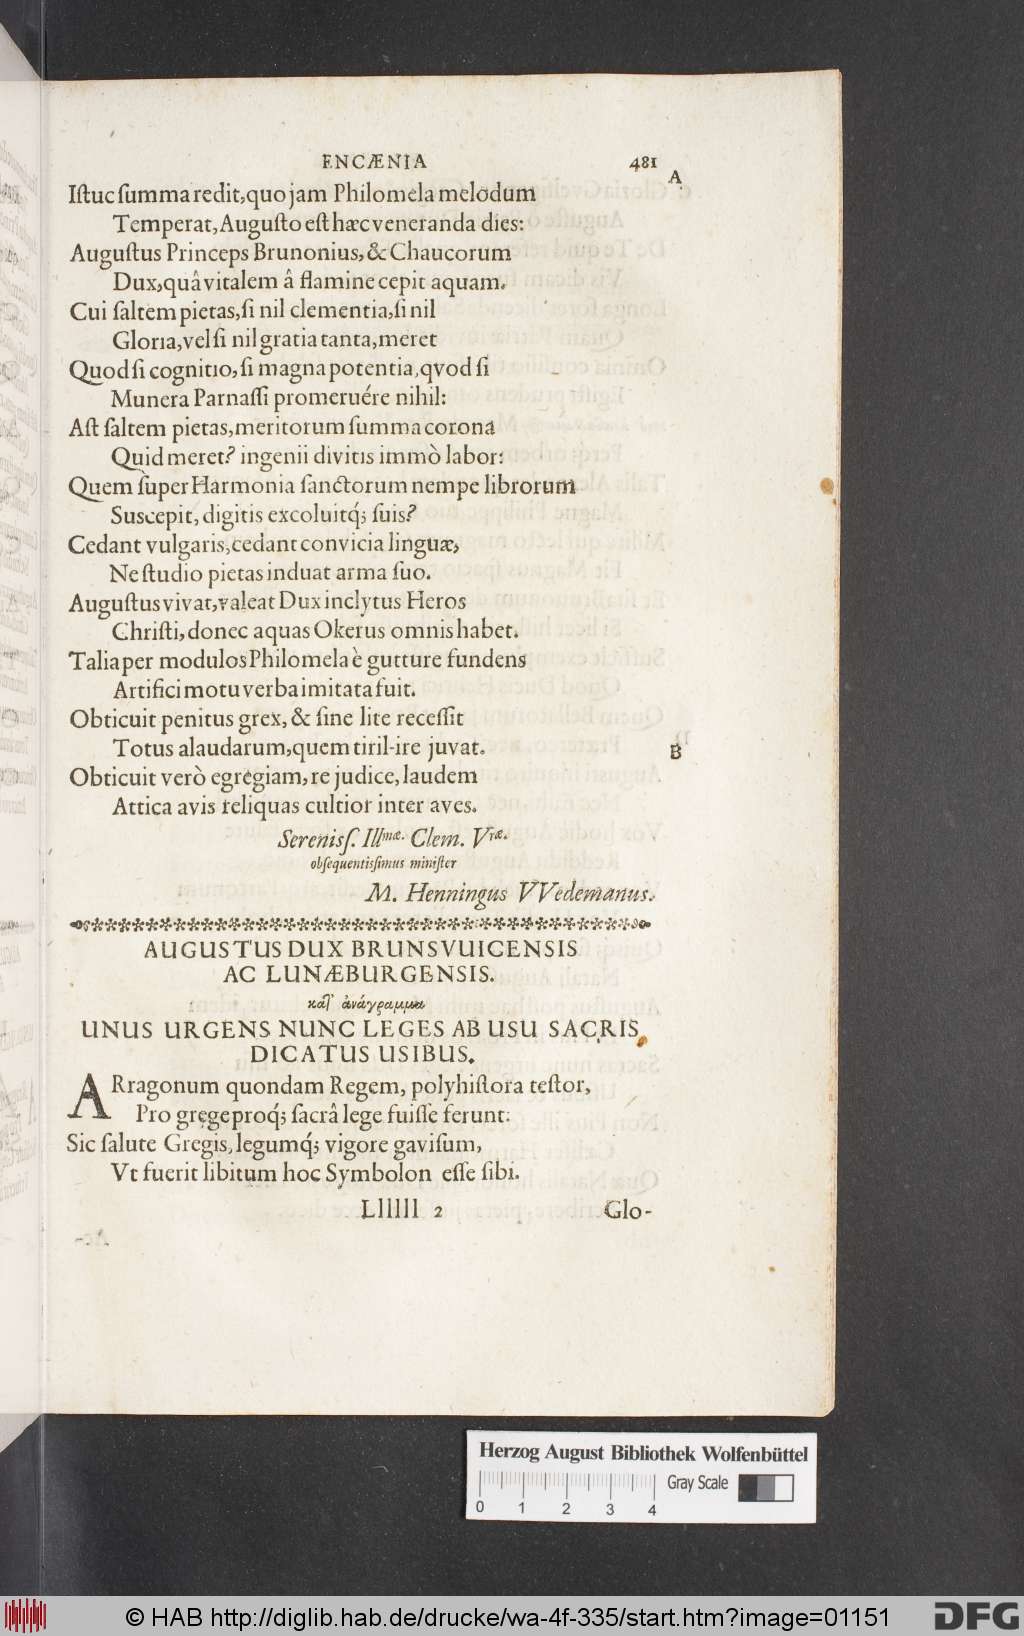 ENCÆNIA 481
A
Iſtuc ſumma redit, quo jam Philomela melodum
Temperat, Auguſto eſt hæc veneranda dies:
Auguſtus Princeps Brunonius, & Chaucorum
Dux, quâ vitalem â flamine cepit aquam.
Cui ſaltem pietas, ſi nil clementia, ſi nil
Gloria, vel ſi nil gratia tanta, meret
Quod ſi cognitio, ſi magna potentia, qvod ſi
Munera Parnaſſi promeruére nihil:
Aſt ſaltem pietas, meritorum ſumma corona
Quid meret? ingenii divitis immò labor:
Quem ſuper Harmonia ſanctorum nempe librorum
Suscepit, digitis excoluitq́; ſuis?
Cedant vulgaris, cedant convicia linguæ,
Ne ſtudio pietas induat arma ſuo.
Auguſtus vivat, valeat Dux inclytus Heros
Chriſti, donec aquas Okerus omnis habet.
Talia per modulos Philomela è gutture fundens
Artifici motu verba imitata fuit.
Obticuit penitus grex, & ſine lite receſſit
Totus alaudarum, quem tiril-ire juvat.
B
Obticuit verò egregiam, re judice, laudem
Attica avis reliquas cultior inter aves.
Sereniſſ. Illmæ. Clem. Vræ.
obſequentiſsimus miniſter
M. Henningus VVedemanus.
AUGUSTUS DUX BRUNSVUICENSIS
AC LUNÆBURGENSIS.
κατ' ἀνάγραμμα
UNUS URGENS NUNC LEGES AB USU SACRIS
DICATUS USIBUS.
ARragonum quondam Regem, polyhiſtora teſtor,
Pro grege proq́; ſacrâ lege fuiſſe ferunt:
Sic ſalute Gregis, legumq́; vigore gaviſum,
Vt fuerit libitum hoc Symbolon eſſe ſibi.
Llllll 2 Glo-
Herzog August Bibliothek Wolfenbüttel
Gray Scale
0 1 2 3 4
© HAB http://diglib.hab.de/drucke/wa-4f-335/start.htm?image=01151
DFG